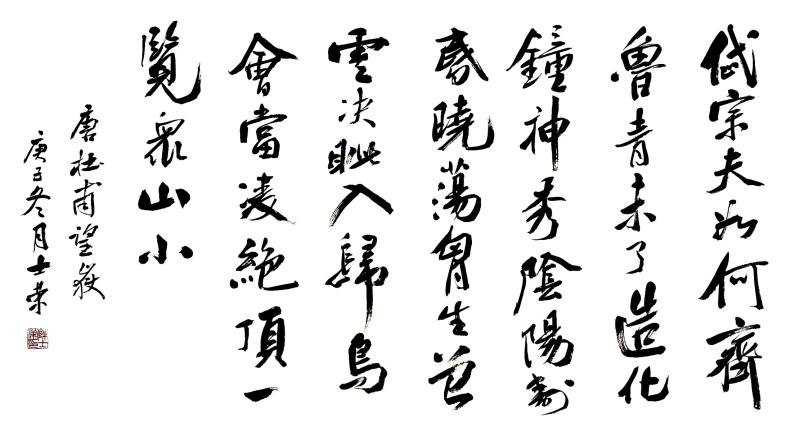 岱宗夫如何齊
魯青未了造化
鐘神秀陰陽割
昏曉蕩胷生曾
雲决眦入歸鳥
會當凌絶頂一
覽衆山小
唐杜甫望嶽
庚子冬月士荣